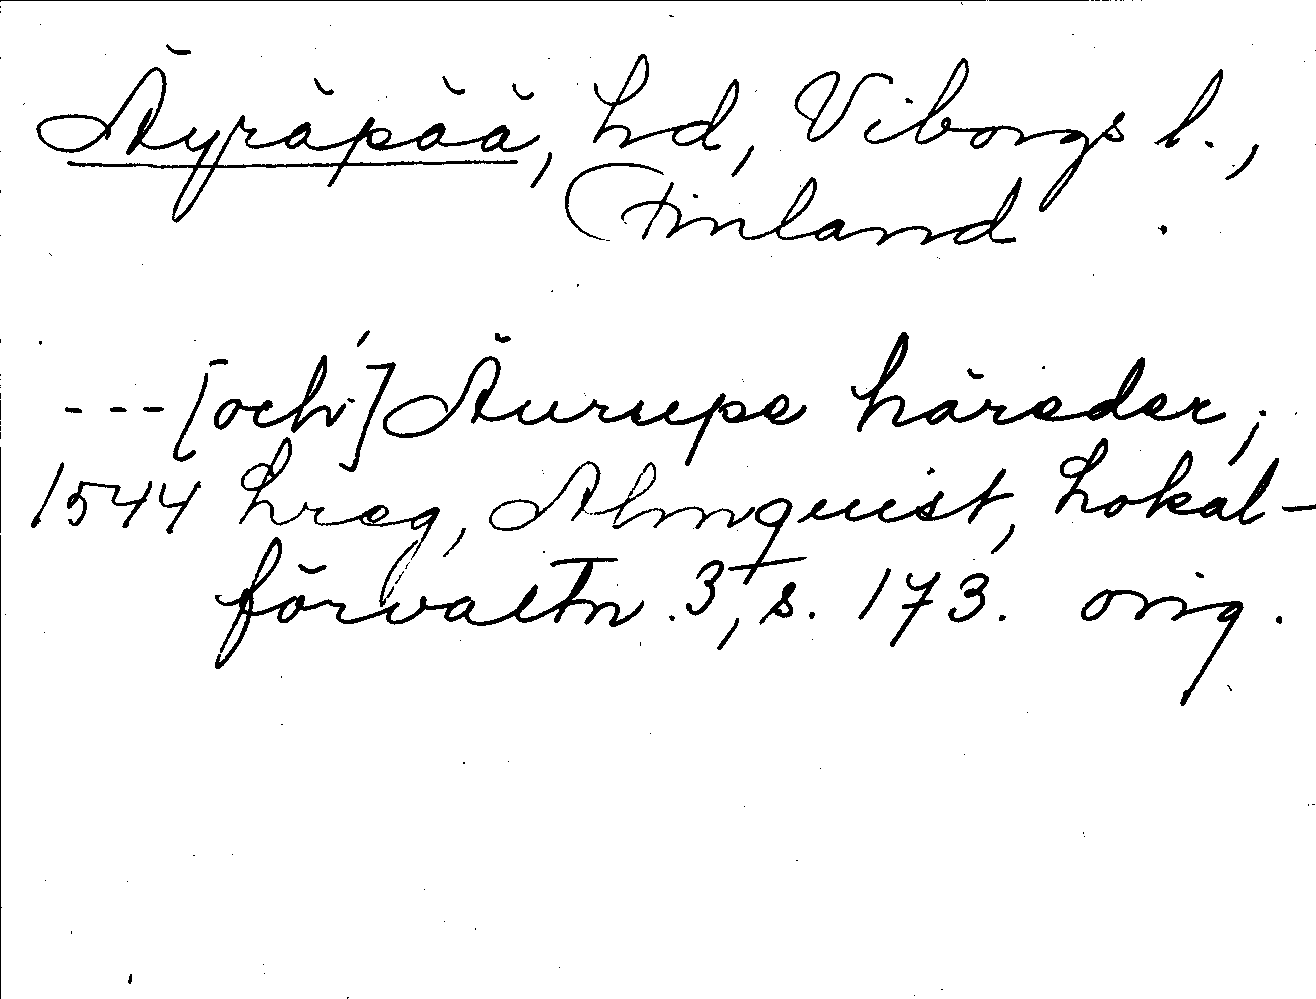 Äyräpää, hd, Viborgs l.,
Finland.
---[och] Äurupe häreder;
1544 hreg, Almquist, Lokal-
förvaltn. 3, s. 173. orig.